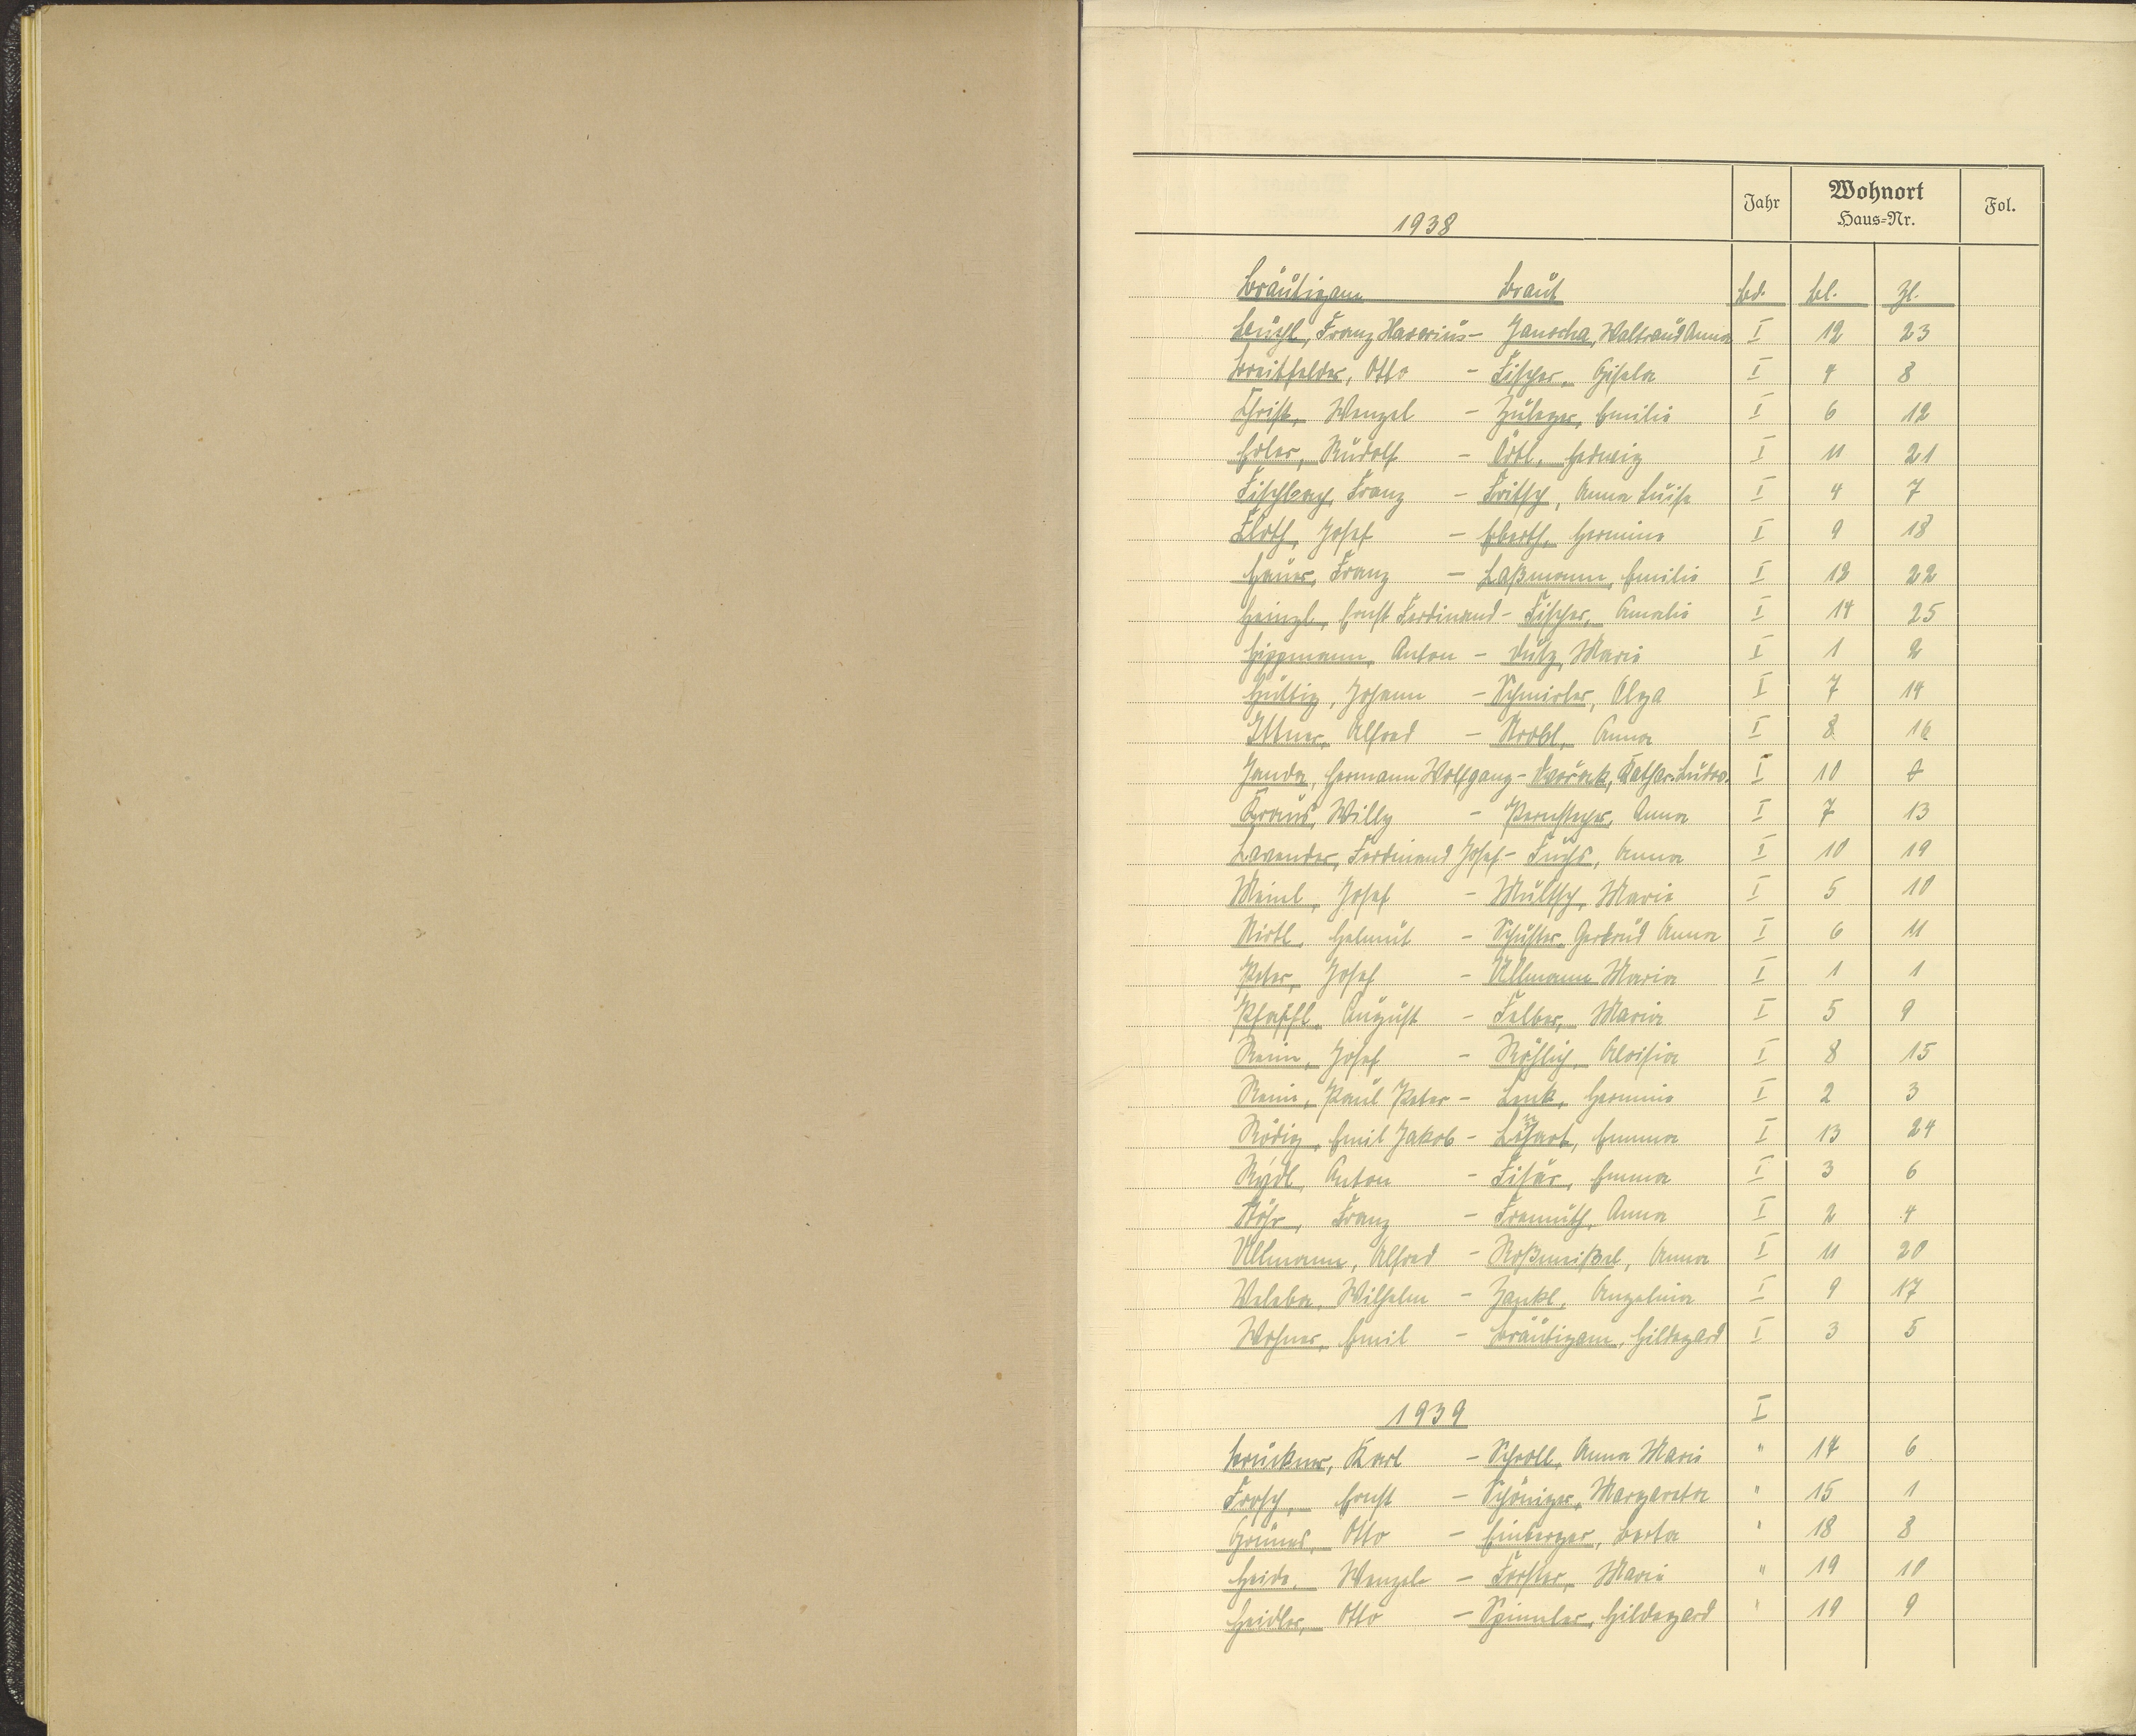 1938
Jahr
Wohnort
Haus-Nr.
Fol.
Bräutigam Braut Bd. Bl. Zl.
Franz Xaverius - Janscha, Waltraud Anna I 12 23
Breitfelder, Otto - Fischer, Gisela I 4 8
Christ, Wenzel - Zuleger, Emilie I 6 12
Erler, Rudolf - Örtl, Hedwig I 11 21
Fischbach, Franz - Fritsch, Anna Luise I 4 7
Floth, Josef - Eberth, Hermine I 9 18
Hauer, Franz - Laßmann, Emilie I 12 22
Heinzl, Ernst Ferdinand - Fischer, Amalie I 14 25
Hippmann, Anton - Dutz, Marie I 1 2
Hüttig, Johann - Schmirler, Olga I 7 14
Ittner, Alfred - Anna I 8 16
Janda, Hermann Wolfgang - Dvořak, Kathar. Ludov. I 10
Kraus, Willy - Anna I 7 13
Lavender, Ferdinand Josef - Fuchs, Anna I 10 19
Meinl, Josef - Multsch, Marie I 5 10
Nirtl, Helmut - Schuster, Gertrud Anna I 6 11
Peter, Josef - Ullmann Maria I 1 1
Pfaffl, August - Felber, Maria I 5 9
Rein, Josef - Röhlich, Aloisia I 8 15
Reim, Paul Peter - Lenk, Hermine I 2 3
Rödig, Emil Jakob - Emma I 13 24
Rydl, Anton - Fišar, Emma I 3 6
Stöhr, Franz - Fremuth, Anna I 2 4
Ullmann, Alfred - Roßmeißel, Anna I 11 20
Weleba, Wilhelm - Zankl, Angelina I 9 17
Wohner, Emil - Bräutigam, Hildegard I 3 5
1939 I
Bruckner, Karl - Schroll, Anna Marie " 17 6
Frosch, Ernst - Schöniger, Margareta " 15 1
Grünes, Otto - Einberger, Berta " 18 8
Heide, Wenzel - Förster, Marie " 19 10
Heidler, Otto - Spinnler, Hildegard " 19 9